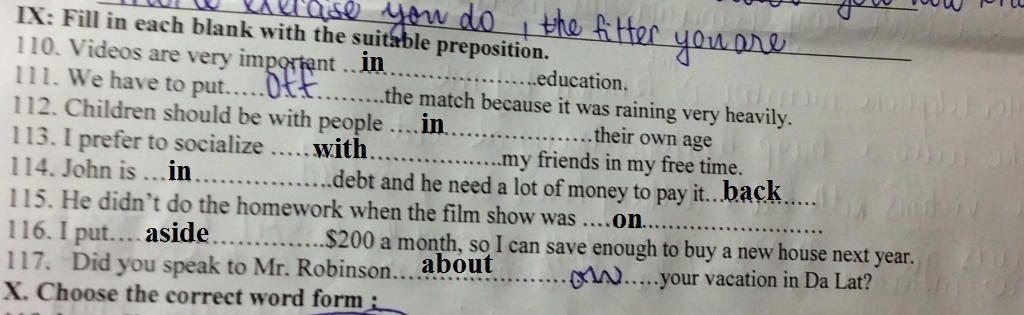 exercise you do , the fitter you are
IX: Fill in each blank with the suitable preposition.
110. Videos are very important ..in......................education.
111. We have to put.....Off...........the match because it was raining very heavily.
112. Children should be with people ....in.......................their own age
113. I prefer to socialize .....with....................my friends in my free time.
114. John is ...in....................debt and he need a lot of money to pay it...back.....
115. He didn't do the homework when the film show was ....on.........................
116. I put.... aside ................$200 a month, so I can save enough to buy a new house next year.
117. Did you speak to Mr. Robinson....about..............on.....your vacation in Da Lat?
X. Choose the correct word form :